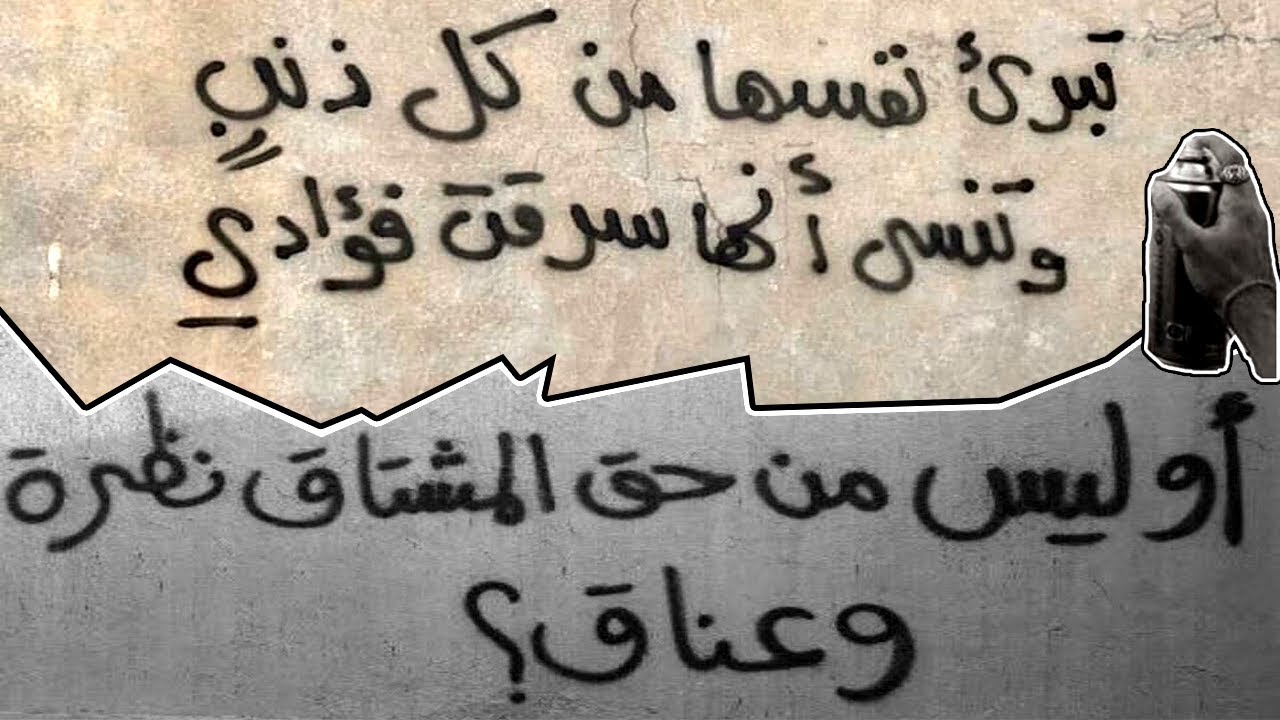 تبرئ نفسها من كل ذنبٍ
وتَنسى أنها سرقَتَ فؤادي
أو ليس من حق المشتاق نظرة
وعناق؟